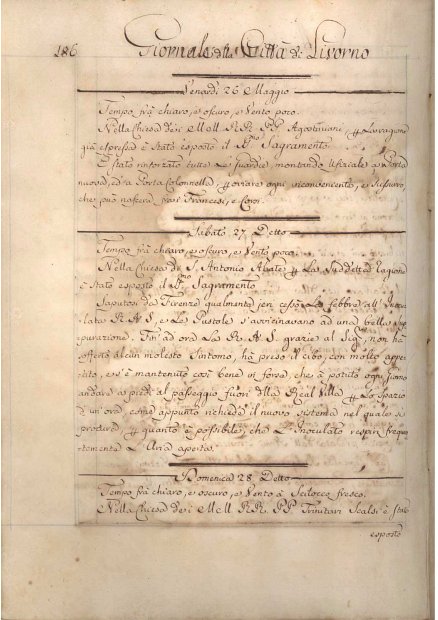 186 Giornale della Città di Livorno
Venardì 26 Maggio
Tempo frà chiaro, e oscuro, e Vento poco.
Nella Chiesa dei Mell. RR. PP. Agostiniani la ragione
già espressa è Stato esposto il Smo. Sagramento.
È stato rinforzato tutte le Guardie montando Ufiziale a Porta
nuova, ed a Porta Colonnella ovviare ogni inconveniente, e Sussurro
che può nascere frai Francesi, e Corsi.
Sabato 27 Detto
Tempo frà chiaro, e oscuro, e Vento poco.
Nella Chiesa di S. Antonio Abate La Suddetta ragione
è Stato esposto il Smo. Sagramento
Saputosi da Firenze qualmente jeri cessò La febbre all'
R. A. S. e Le Pustole s'avvicinavano ad una bella Sup
purazione. Fin ad ora La R. A. S. grazie al Sigr. non hà
offerto alcun molesto Sintomo, hà preso il cibo, con molto appe
tito, e s'è mantenuto così bene in forza, che à potuto ogni giorno
andare a piedi al passeggio fuori della Real Villa Lo spazio
d'un'ora come appunto richiede il nuovo sistema nel quale si
procura quanto è possibile, che L'Inoculato respiri frequen
temente L'Aria aperta.
Domenica 28 Detto
Tempo frà chiaro, e oscuro, e Vento à Scilocco fresco.
Nella Chiesa dei Mell. RR. PP. Trinitari Scalsi è stato
esposto